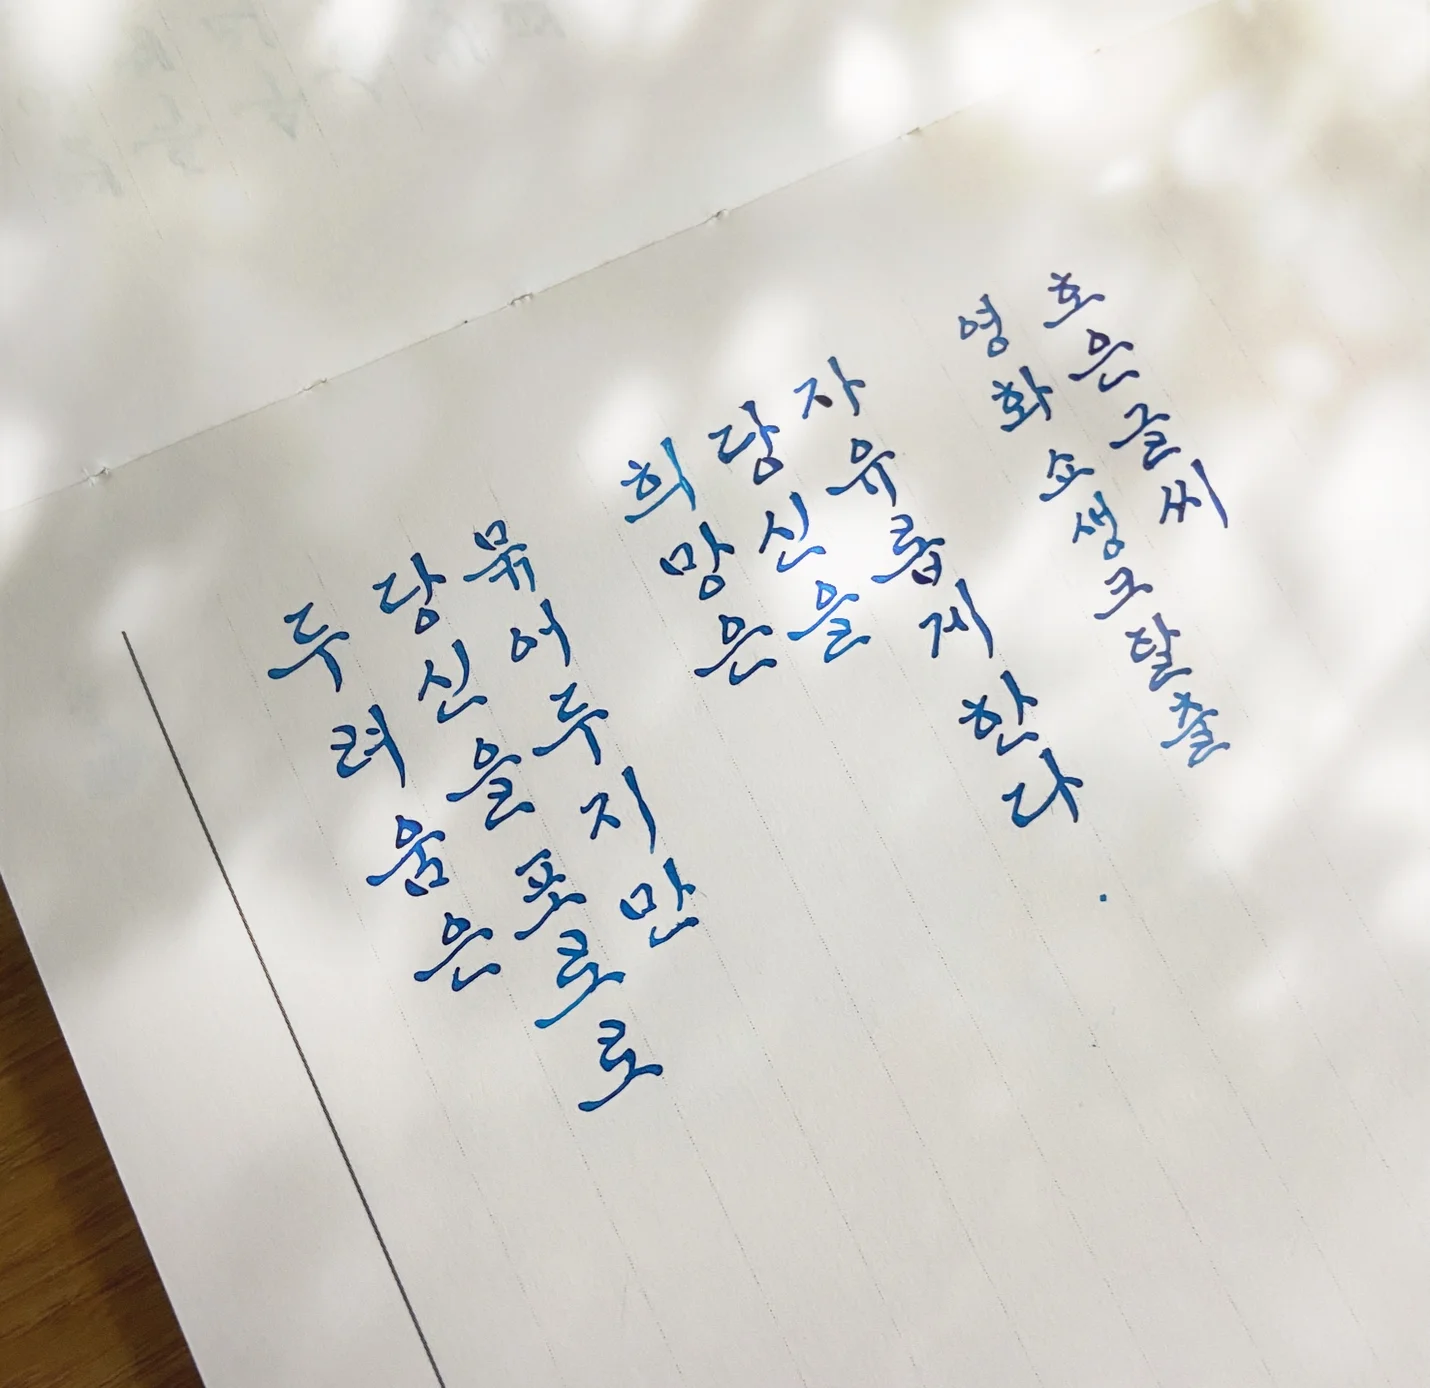 두려움은
당신을 포로로
묶어두지만
희망은
당신을
자유롭게 한다.
영화 쇼생크탈출
호은글씨